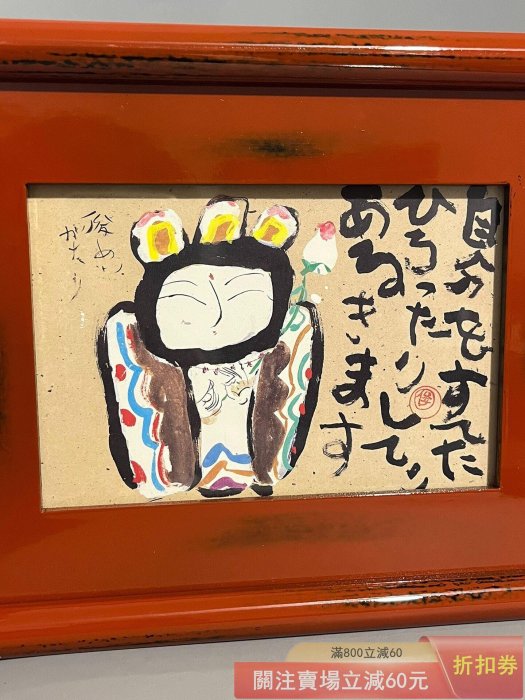 自分をすてたり
ひろったりして
あるきます
滿800立減60
關注賣場立減60元
折扣券